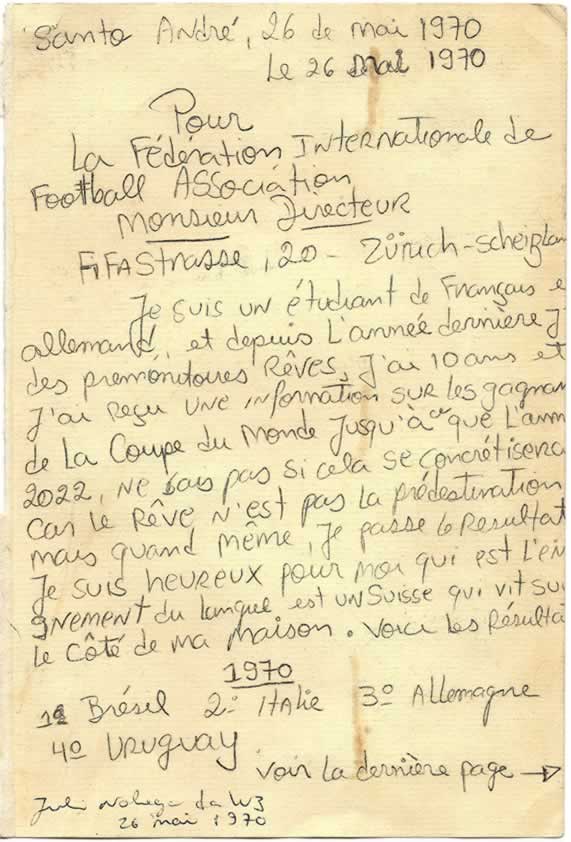 Santo André, 26 de mai 1970
Le 26 mai 1970
Pour
La Fédération Internationale de
Football Association
Monsieur Directeur
FiFAStrasse, 20 - Zürich-scheizlan
Je suis un étudiant de Français e
allemand, et depuis L'année dernière J'
des premonitoires Rêves, J'ai 10 ans et
J'ai Reçu une information sur les gagnan
de La Coupe du Monde Jusqu'à ce que L'ann
2022, Ne sais pas si cela se concrétisera
Car le Rêve N'est pas la prédestination
mais quand même, Je passe le Resultat
Je suis heureux pour moi qui est L'en
gnement du langue est un Suisse qui vit su
le côté de ma maison. Voici Les Résulta
1970
1º Brésil 2º Italie 3º Allemagne
4º Uruguay
voir La dernière page →
da Luz
26 mai 1970